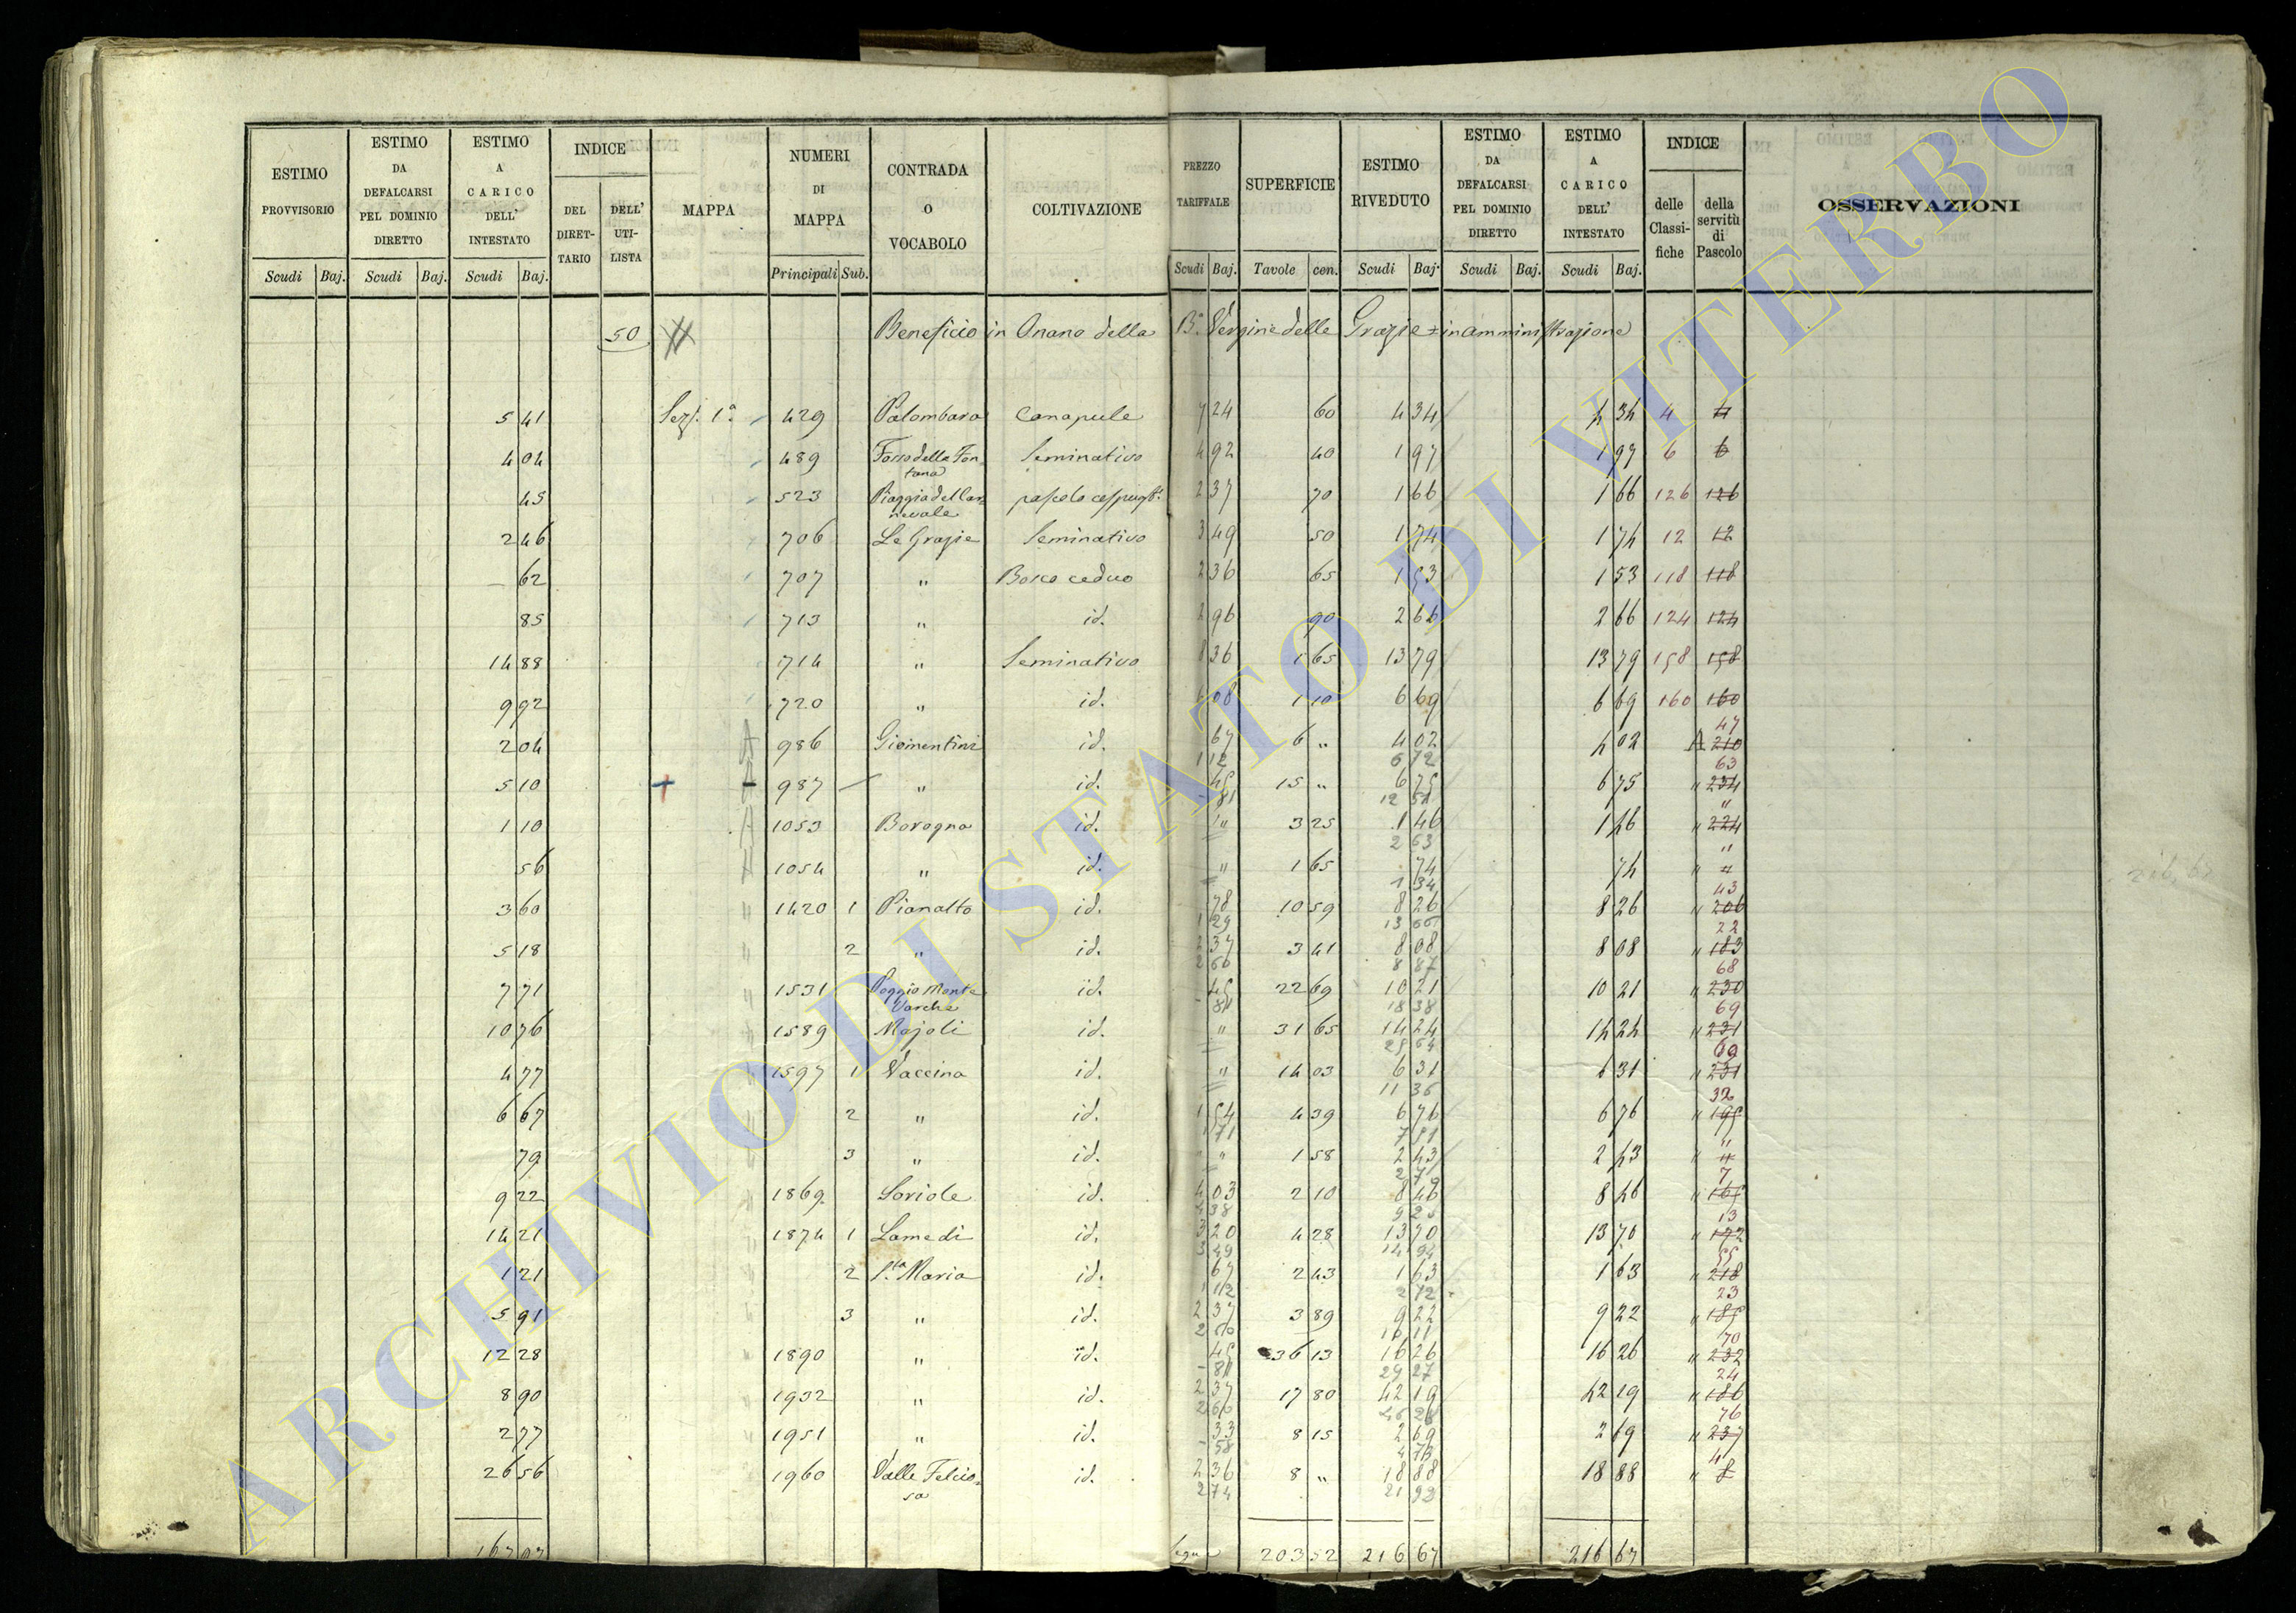 ESTIMO PROVVISORIO Scudi Baj.
ESTIMO DA DEFALCARSI PEL DOMINIO DIRETTO Scudi Baj.
ESTIMO A CARICO DELL' INTESTATO Scudi Baj.
INDICE DEL DIRETTARIO DELL' UTILISTA
MAPPA
NUMERI DI MAPPA Principali Sub.
CONTRADA O VOCABOLO
COLTIVAZIONE
PREZZO TARIFFALE Scudi Baj.
SUPERFICIE Tavole cen.
ESTIMO RIVEDUTO Scudi Baj.
ESTIMO DA DEFALCARSI PEL DOMINIO DIRETTO Scudi Baj.
ESTIMO A CARICO DELL' INTESTATO Scudi Baj.
INDICE delle Classifiche della servitù di Pascolo
OSSERVAZIONI
50 Beneficio in Onano della B.a Vergine delle Grazie = in amministrazione
5 41 Sez. 1a 429 Palombara Canapule 7 24 60 4 34 4 34 4 4
4 04 489 Fosso della Fontana Seminativo 4 92 40 1 97 1 97 6 6
45 523 pascolo 2 37 70 1 66 1 66 126 126
2 46 706 Le Grazie Seminativo 3 49 50 1 74 1 74 12 12
62 707 " Bosco ceduo 2 36 65 1 53 1 53 118 118
85 713 " id. 2 96 90 2 66 2 66 124 124
14 88 714 " Seminativo 8 36 1 65 13 79 13 79 158 158
9 92 720 " id. 6 08 1 10 6 69 6 69 160 160
2 04 986 Giomentini id. 67 6 " 4 02 4 02 210 47
1 12 6 72
5 10 987 " id. 45 15 " 6 75 6 75 " 234 63
81
1 10 1053 Borogna id. " 3 25 1 46 1 46 " 224 "
2 63
56 1054 " id. " 1 65 74 74 " "
1 34
3 60 1420 1 Pianalto id. 78 10 59 8 26 8 26 " 206 43
1 29 13 66
5 18 2 " id. 2 37 3 41 8 08 8 08 " 183 22
2 60 8 87
7 71 1531 Poggio Monte Varche id. 45 22 69 10 21 10 21 " 230 68
81 18 38
10 76 1589 Majoli id. " 31 65 14 24 14 24 " 231 69
25 64
4 77 1597 1 Vaccina id. " 14 03 6 31 6 31 " 231 69
11 36
6 67 2 " id. 1 54 4 39 6 76 6 76 " 195 32
1 71 7 51
79 3 " id. " " 1 58 2 43 2 43 " " "
9 22 1869 Soriole id. 4 03 2 10 8 46 8 46 " 165 7
4 38
14 21 1874 1 Lamedi id. 3 20 4 28 13 70 13 70 " 172 13
3 49 14 94
1 21 2 S.ta Maria id. 67 2 43 1 63 1 63 " 218 55
1 12 2 72
5 91 3 " id. 2 37 3 89 9 22 9 22 " 185 23
2 60 10 11
12 28 1890 " id. 45 36 13 16 26 16 26 " 232 70
81 29 27
8 90 1932 " id. 2 37 17 80 42 19 42 19 " 186 24
2 60 46 28
2 77 1951 " id. 33 8 15 2 69 2 69 " 237 76
58 4 73
26 56 1960 Valle Felciosa id. 2 36 8 " 18 88 18 88 " 8 4
2 74 21 92
167 97 Segue 203 52 216 67 216 67
ARCHIVIO DI STATO DI VITERBO